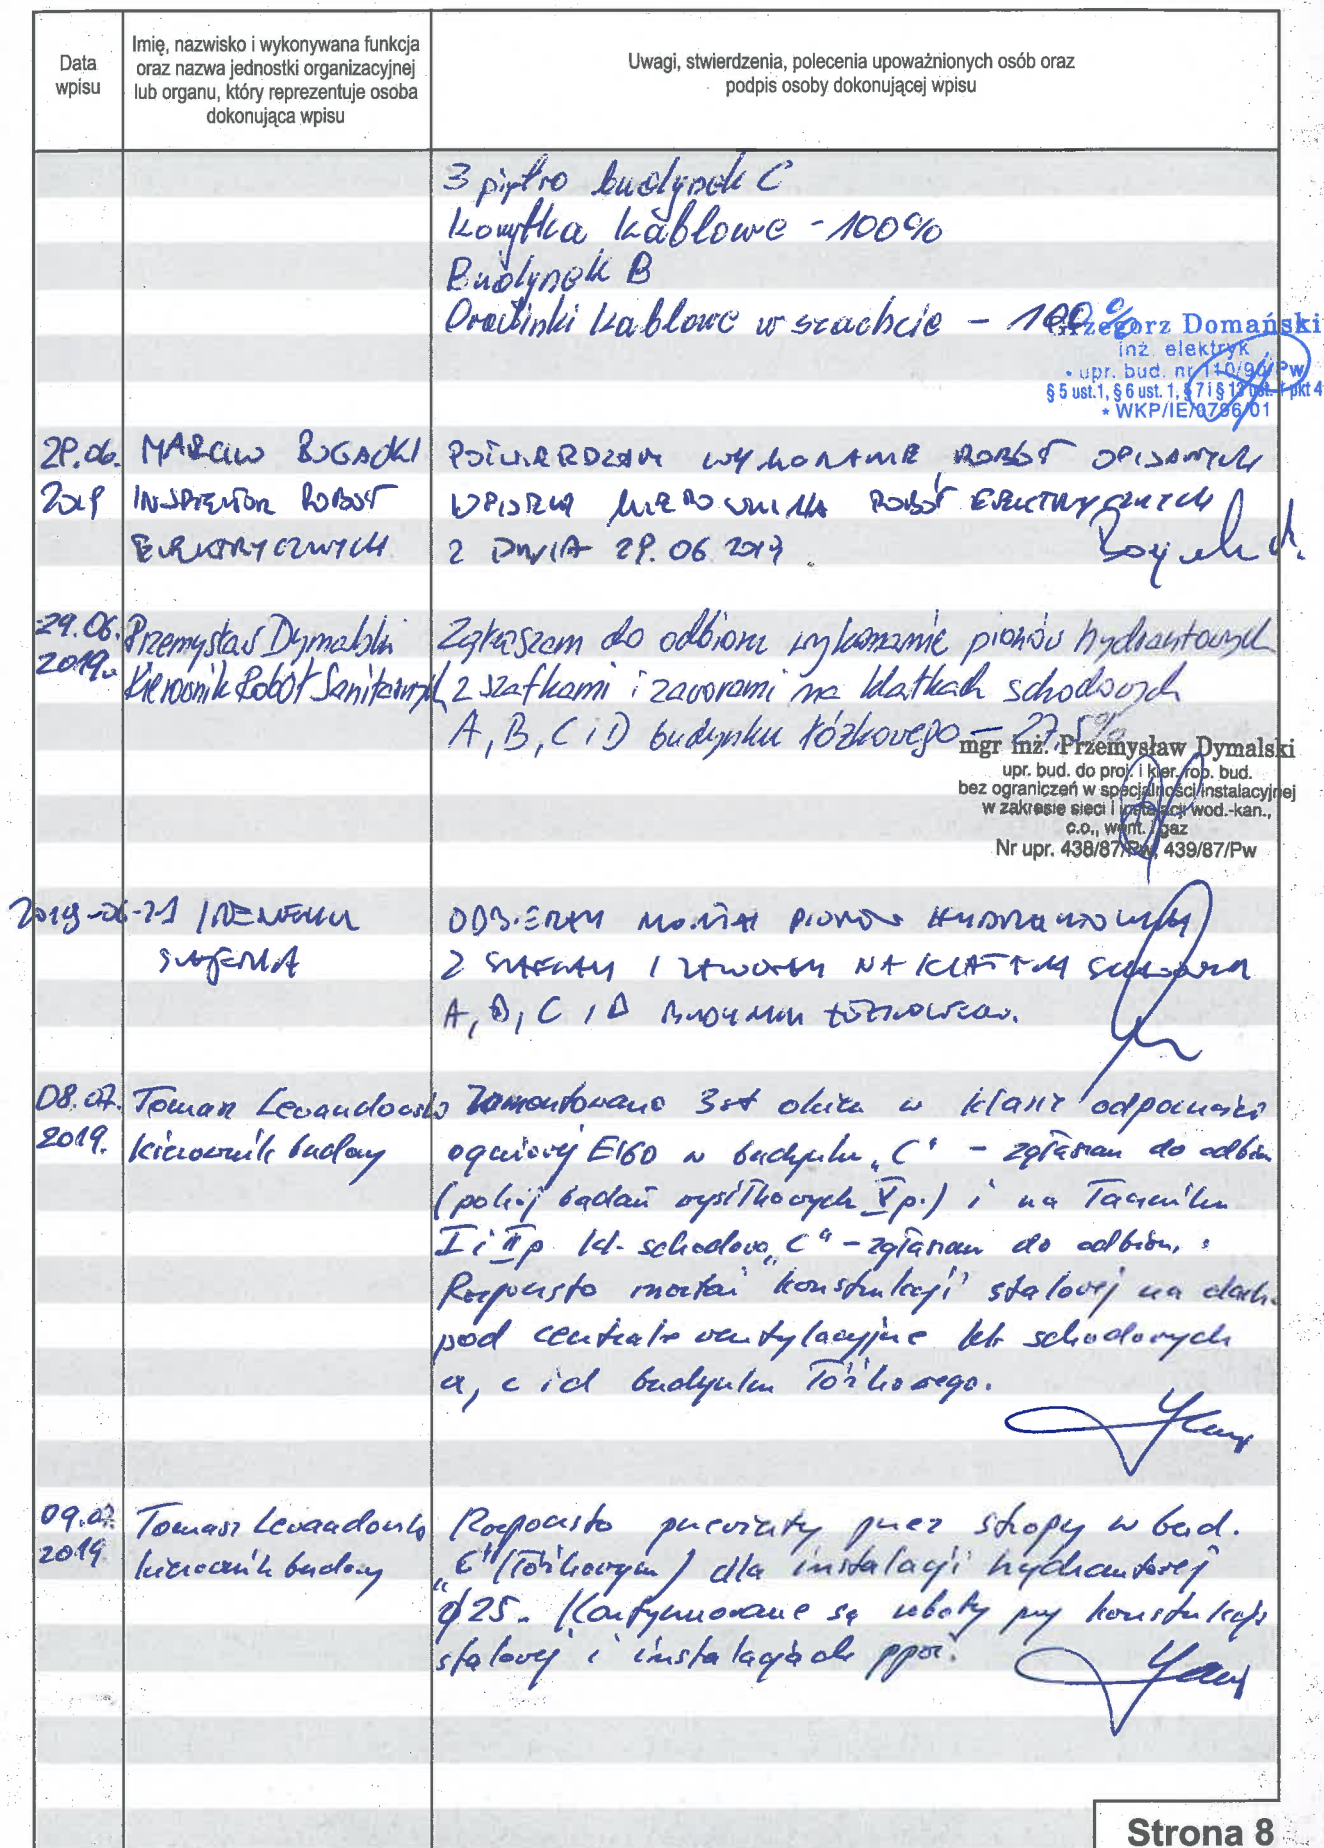 Data
wpisu
Imię, nazwisko i wykonywana funkcja
oraz nazwa jednostki organizacyjnej
lub organu, który reprezentuje osoba
dokonująca wpisu
Uwagi, stwierdzenia, polecenia upoważnionych osób oraz
podpis osoby dokonującej wpisu
3 piętro budynek C
Korytka kablowe - 100%
Budynek B
Drabinki kablowe w szachcie - 100%
Grzegorz Domański
inż. elektryk
upr. bud. nr 110/90/Pw
§ 5 ust.1, § 6 ust. 1, § 7 i § 13 ust. 1 pkt 4
* WKP/IE/0796/01
29.06.
2019
MARCIN BOGACKI
INSPEKTOR ROBÓT
ELEKTRYCZNYCH
POTWIERDZAM WYKONANIE ROBÓT OPISANYCH
WPISEM KIEROWNIKA ROBÓT ELEKTRYCZNYCH
Z DNIA 29.06.2019
29.06.
2019.
Przemysław Dymalski
Kierownik Robót Sanitarnych
Zgłaszam do odbioru wykonanie pionów hydrantowych
z szafkami i zaworami na klatkach schodowych
A, B, C i D budynku łóżkowego - 27,5%
mgr inż. Przemysław Dymalski
upr. bud. do proj. i kier. rob. bud.
bez ograniczeń w specjalności instalacyjnej
w zakresie sieci i instalacji wod.-kan.,
c.o., went. i gaz
Nr upr. 438/87/Pw, 439/87/Pw
IRENEUSZ
ODBIERAM MONTAŻ PIONÓW HYDRANTOWYCH
Z SZAFKAMI I ZAWORAMI NA KLATKACH
A, B, C i D BUDYNKU ŁÓŻKOWEGO.
08.07.
2019.
Tomasz Lewandowski
kierownik budowy
Zamontowano 3 szt okien w klasie odporności
ogniowej EI60 w budynku "C" - zgłaszam do odbioru
(pokój badań wysiłkowych V p.) i na łączniku
I i II p kl. schodowa "C" - zgłaszam do odbioru.
Rozpoczęto montaż konstrukcji stalowej na dachu
pod centrale wentylacyjne klatek schodowych
a, c i d budynku łóżkowego.
09.07
2019
Tomasz Lewandowski
kierownik budowy
Rozpoczęto przewierty przez stropy w bud.
"C" (łóżkowym) dla instalacji hydrantowej
ø25. Kontynuowane są roboty przy konstrukcji
stalowej i instalacjach ppoż.
Strona 8